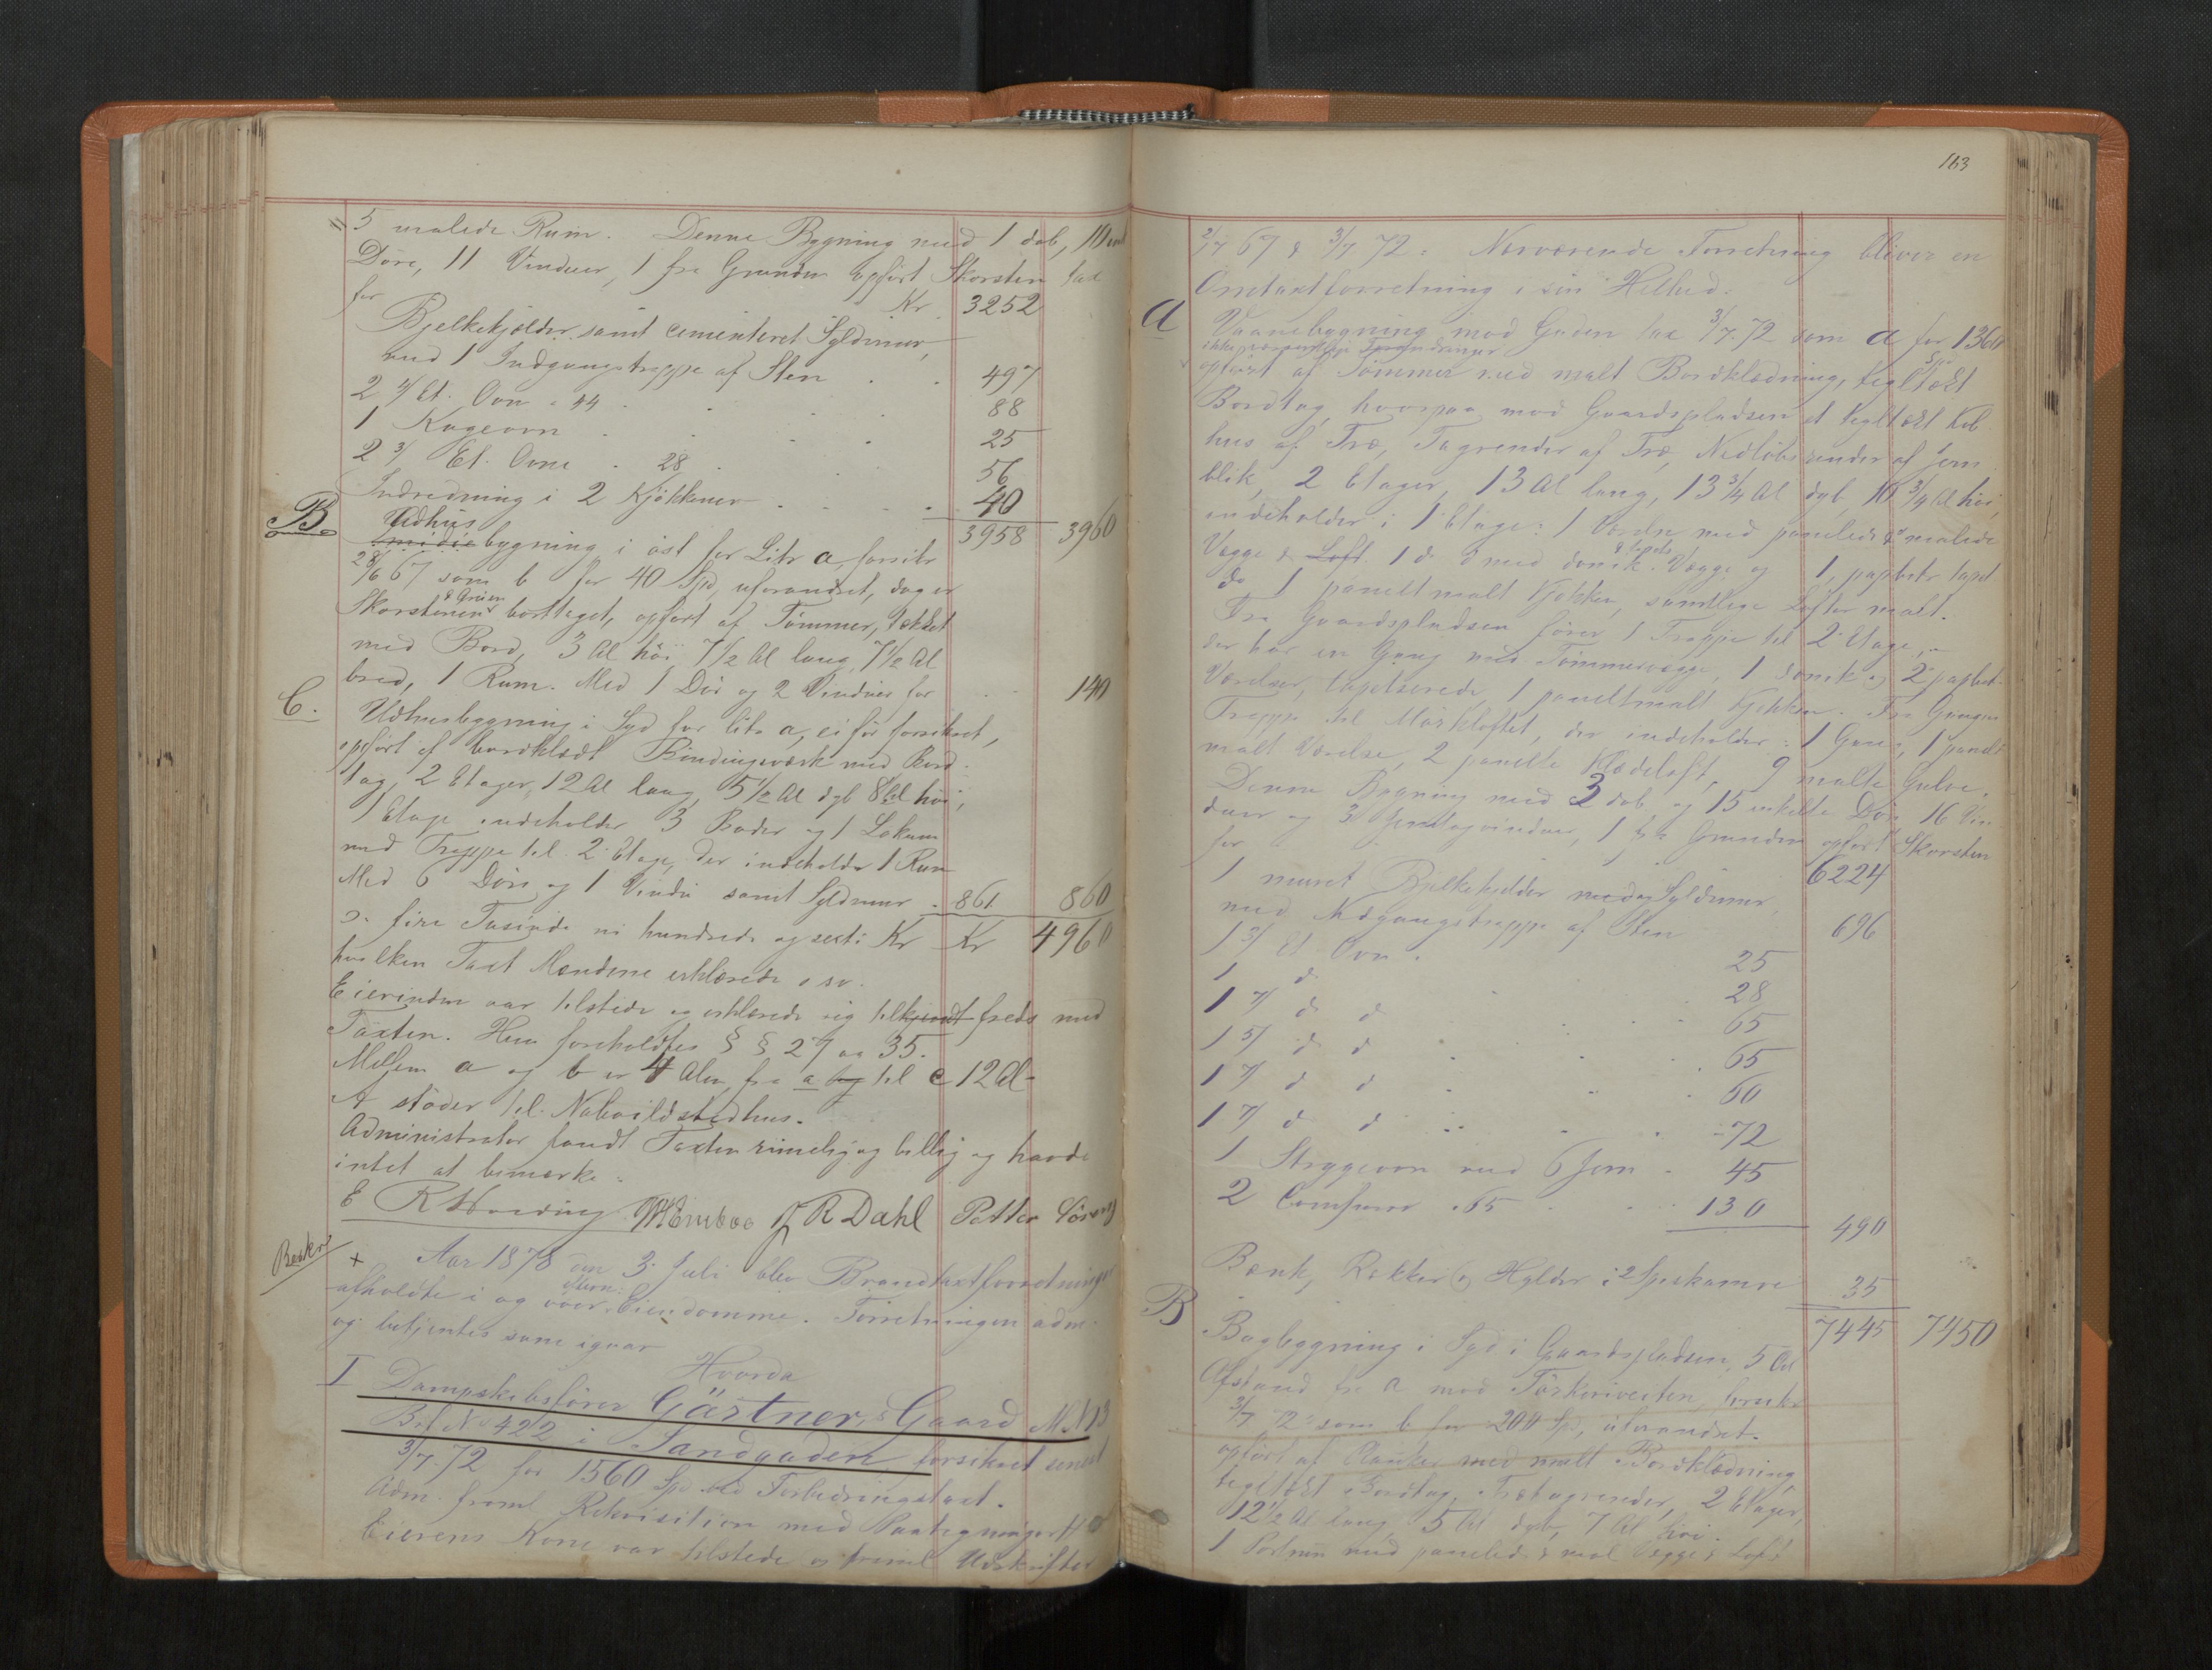 5 malede Rum. Denne Bygning med 1 dob, 10 enk
Döre, 11 Vinduer, 1 fra Grunden opfört Skorsten tax
for Kr. 3252
Bjelkekjelder samt cementeret Syldmur,
med 1 Indgangstrappe af Sten . . 497
2 4/ Et. Ovn à 44 . . . 88
1 Kageovn . . . 25
2 3/ Et. Ovne à 28 . . 56
Indredning i 2 Kjökkener . . . 40
3958 3960
B Udhus
bygning i öst for Litr a, forsikr
28/6 67 som b for 40 Spd, uforandret, dog er
Skorstenen & Gruen borttaget, opfört af Tömmer, tækket
med Bord, 3 Al höi, 7 1/2 Al lang, 7 1/2 Al
bred, 1 Rum. Med 1 Dör og 2 Vinduer for . . 140
C. Udhusbygning i Syd for litr a, ei för forsikret,
opfört af bordklædt Bindingsværk med Bord-
tag, 2 Etager, 12 Al lang, 5 1/2 Al dyb 8 Al höi,
1 Etage indeholder 3 Boder og 1 Lokum
med Trappe til 2 Etage, der indeholder 1 Rum
Med 6 Döre og 1 Vindu samt Syldmur . 861. 860
o: fire Tusinde ni hundrede og sexti Kr Kr 4960
hvilken Taxt Mændene erklærede o s v.
Eierinden var tilstede og erklærede sig tilkjendt freds med
Taxten. Hun foreholdtes § § 27 og 35.
Mellem a og b er 4 Alen, fra a og til c 12 Al-
A støder til Nabo ildstedhus.
Administrator fandt Taxten rimelig og billig og havde
intet at bemærke.
E R R Dahl Petter
Beskr + Aar 1878 den 3 Juli blev Brandtaxtforretninger
afholdte i og over Eiendomme. Forretningen adm.
og betjentes som igaar
Hvorda
I Dampskibsförer Gärtner,s Gaard M. N 13
B. f. No 422 i Sandgaden forsikret senest
3/7. 72 for 1560 Spd ved Forbedringstaxt.
Adm. freml Rekvisition med Paategninger
Eierens Kone var tilstede og freml Udskrifter
163
2/7 67 & 3/7 72. Nærværende Forretning bliver en
Omtaxtforretning i sin Helhed.
a Vaanebygning mod Gaden tax 3/7. 72 som a for 1360 Spd
ikke væsentlige Forandringer
opfört af Tömmer med malt Bordklædning, tegltækt
Bordtag, hvorpaa mod Gaardspladsen et tegltækt Kob-
hus af Træ, Tagrender af Træ, Nedlöbsrender af Jern
blik, 2 Etager, 13 Al lang, 13 3/4 Al dyb, 10 3/4 Al höi,
indeholder i 1 Etage: 1 Værelse med panelede & malede
Vægge & Loft 1 do med Vægge og 1, tapet
do 1 panelt malt Kjökken, samtlige Lofter malt.
Fra Gaardspladsen förer 1 Trappe til 2 Etage,
der har en Gang med Tömmervægge, 1 og 2
Værelser, tapetserede, 1 paneltmalt Kjökken. Fra Gangen
Trappe til Mörkloftet, der indeholder: 1 Gang, 1 panelt
malt Værelse, 2 panelte Klædeloft, 9 malte Gulve.
Denne Bygning med 3 dob og 15 enkelte Dör, 16 Vin
duer og 3 Jerntagvinduer, 1 fra Grunden opfört Skorsten
for 6224
1 muret Bjelkekjelder med Syldmur,
med Nedgangstrappe af Sten 696
1 3/ Et Ovn . 25
1 d . 28
1 7/ d d . . . 65
1 5/ d d . . . 65
1 7/ d d . . . 60
1 7/ d d . . . 72
1 Strygeovn med 6 Jern . 45
2 Comfurer à 65 . . . 130
490
Bænk, Rækker og Hylder i 2 Spiskamre 35
7445 7450
B Bagbygning i Syd i Gaardspladsen, 5 Al
Afstand fra a mod forsikr
3/7 72 som b for 200 Sp, uforandret.
opfört af Planker med malt Bordklædning,
tegltækt Bordtag, Trætagrender, 2 Etager,
12 1/2 Al lang, 5 Al dyb, 7 Al höi.
1 Portrum med panelede & mal Vægge & Loft